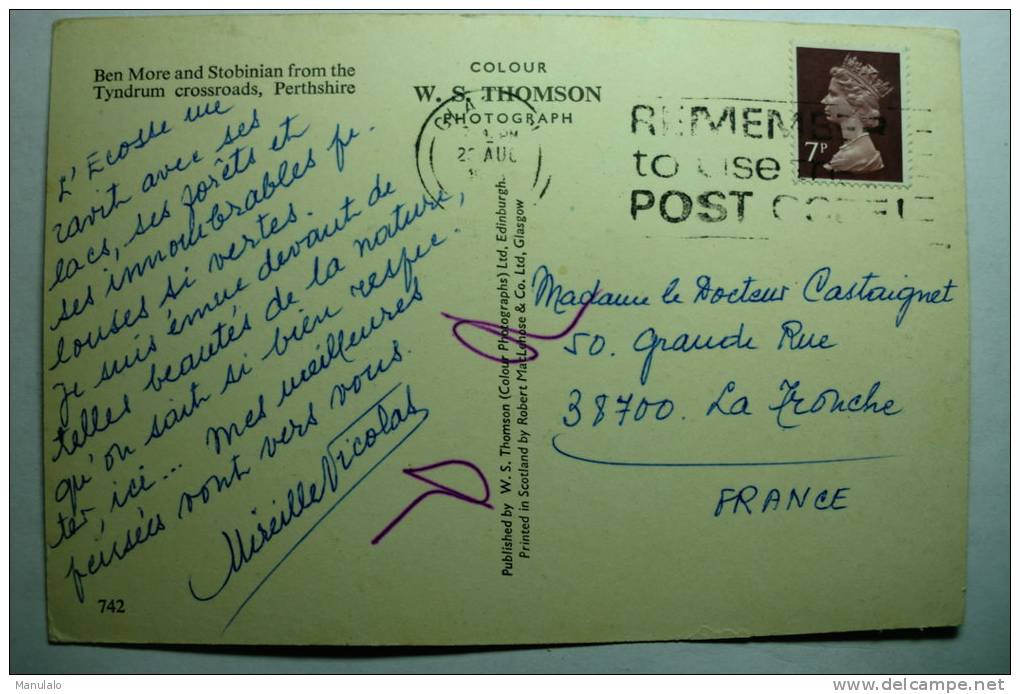 Ben More and Stobinian from the
Tyndrum crossroads, Perthshire
COLOUR
W. S. THOMSON
PHOTOGRAPH
PM
AUG
REMEMBER
to use
POST CODE
7P
L'Ecosse me
ravit avec ses
lacs, ses forêts et
ses innombrables pe-
louses si vertes.
Je suis émue devant de
telles beautés de la nature,
qu'on sait si bien respec-
ter, ici... Mes meilleures
pensées vont vers vous.
Mireille Nicolas
Madame le Docteur Castaignet
50. Grande Rue
38700. La Tronche
FRANCE
Published by W. S. Thomson (Colour Photographs) Ltd, Edinburgh.
Printed in Scotland by Robert MacLehose & Co. Ltd, Glasgow
742
Manulalo
delcampe.net